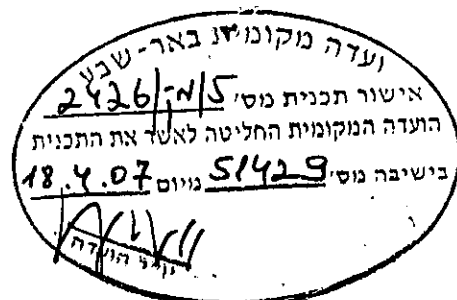 ועדה מקומית באר-שבע
אישור תכנית מס' 5/מק/2426
הועדה המקומית החליטה לאשר את התכנית
בישיבה מס' 51429 מיום 18.4.07
הועדה